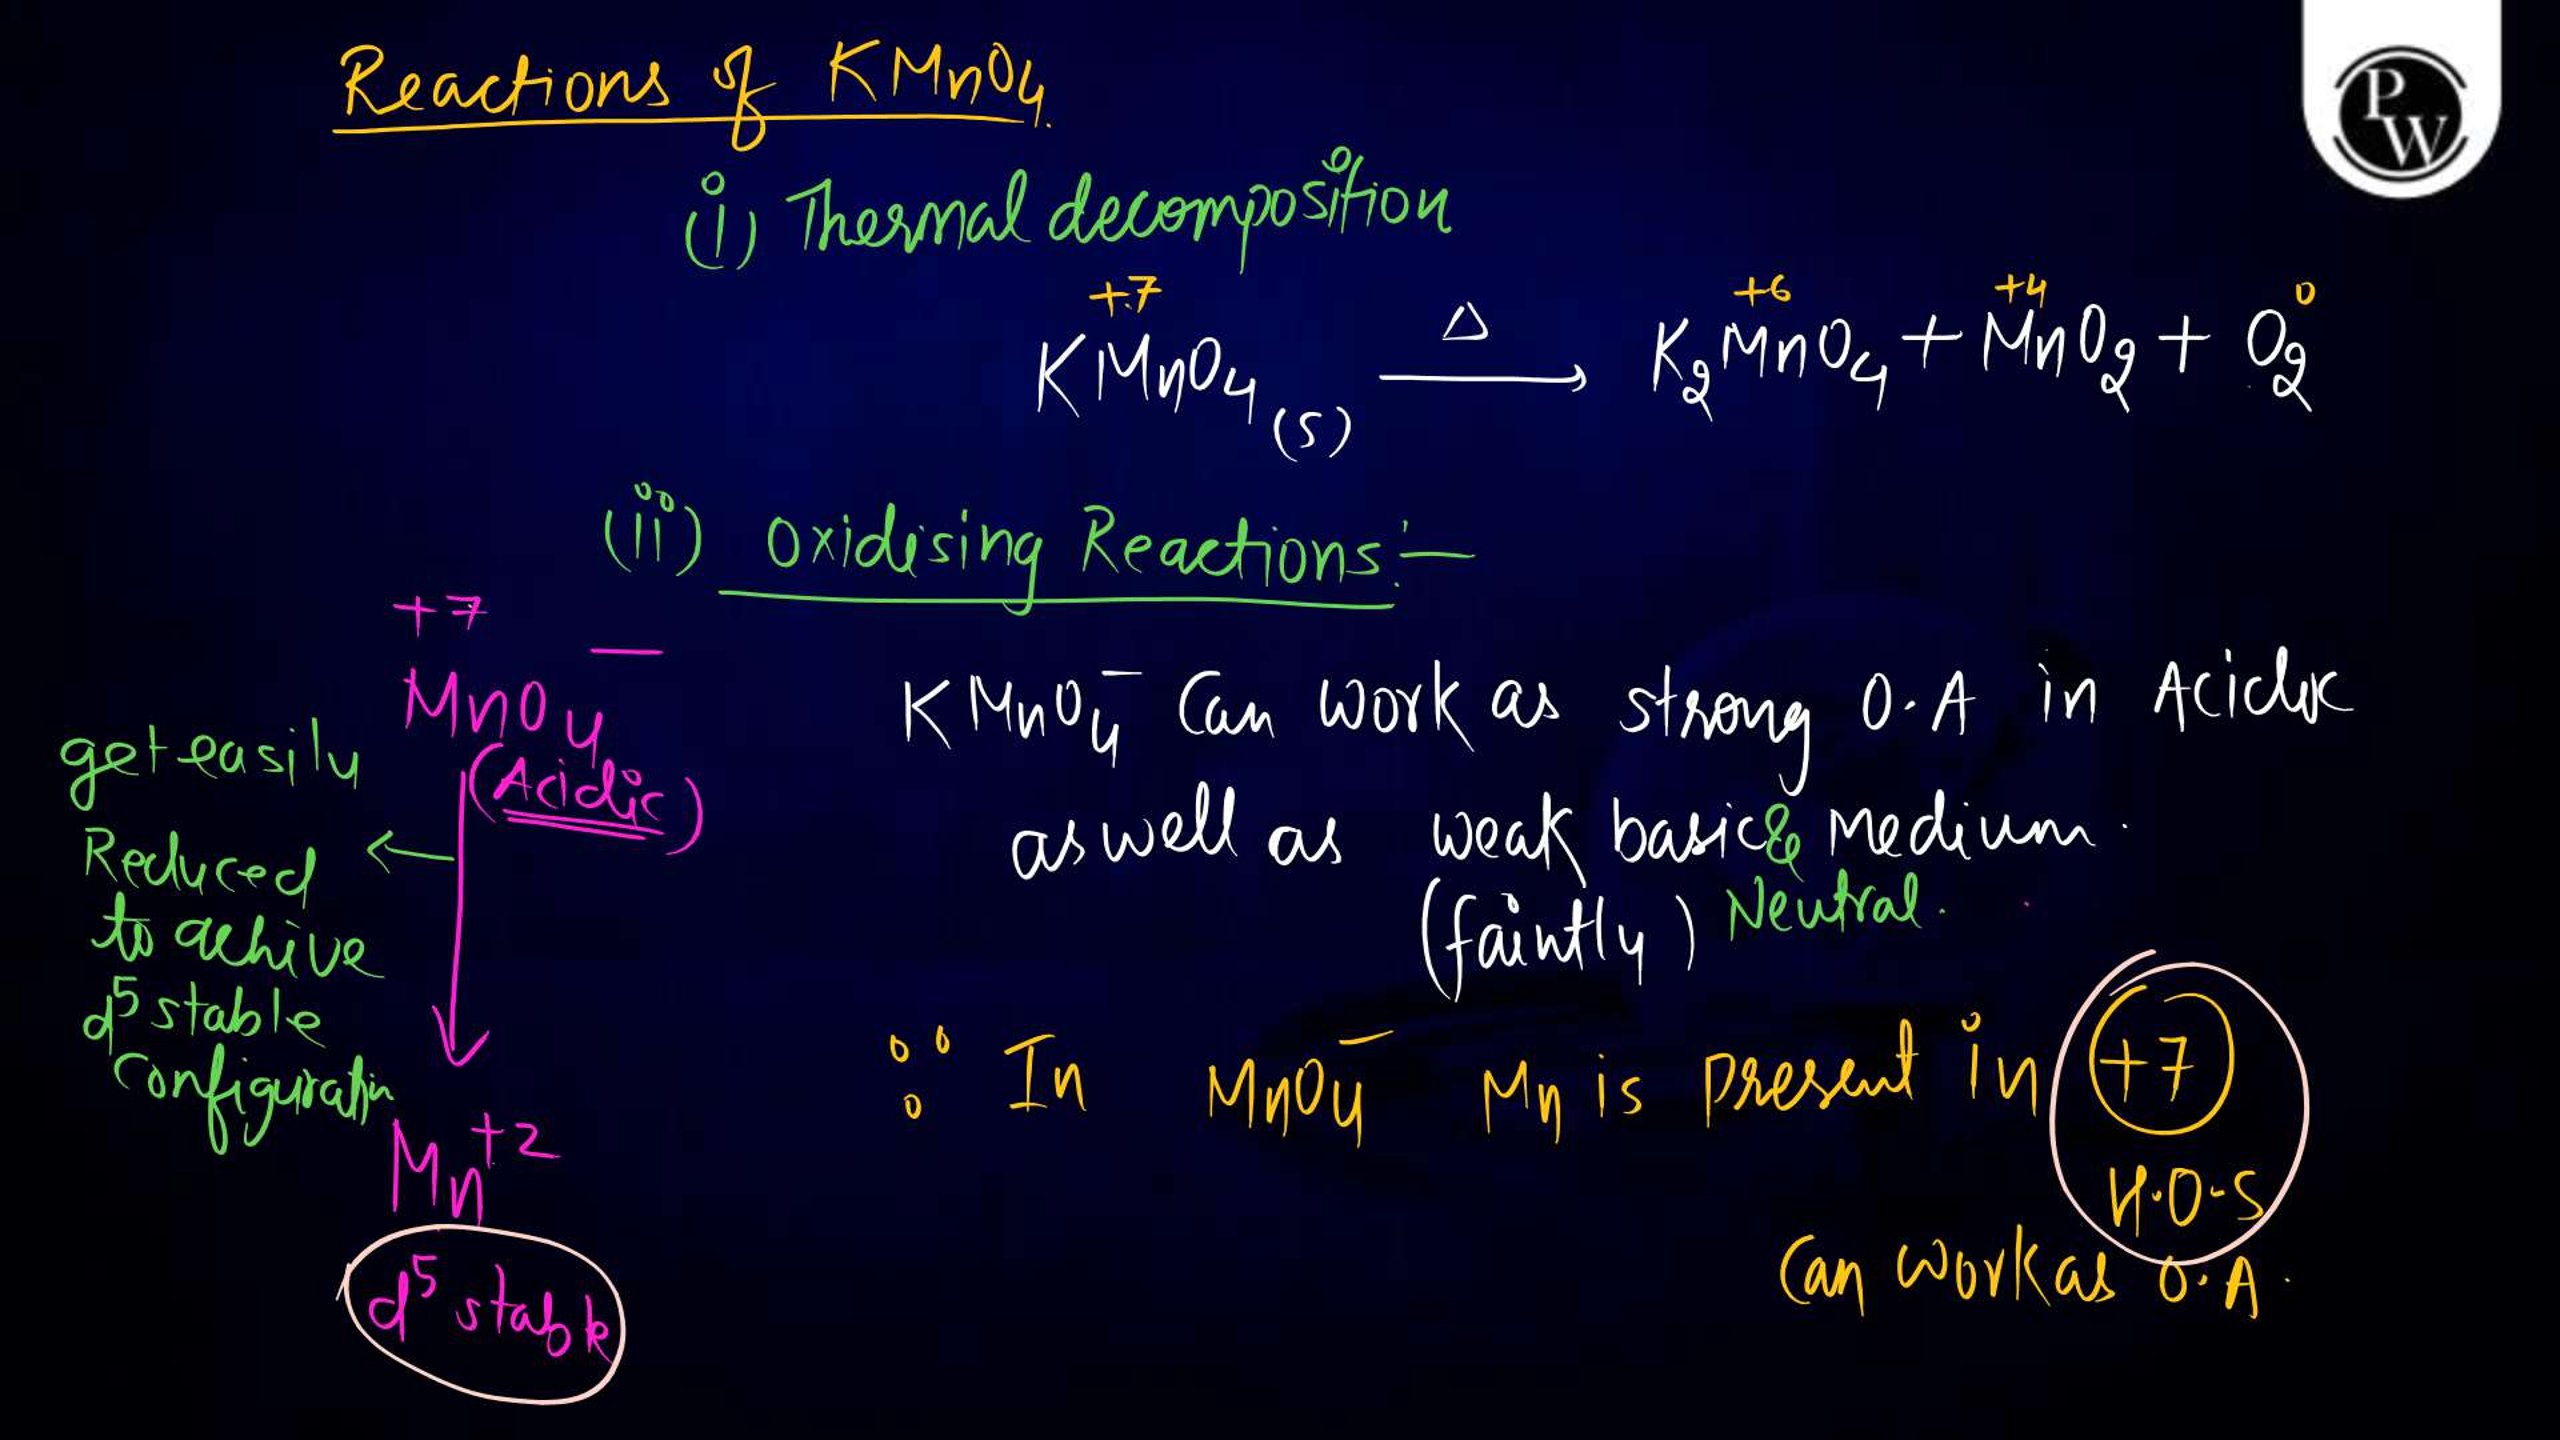 Reactions of KMnO4.
PW
(i) Thermal decomposition
+7 +6 +4 0
KMnO4(s) Δ → K2MnO4 + MnO2 + O2
(ii) Oxidising Reactions:-
+7
MnO4⁻
(Acidic)
get easily
Reduced ←
to achive
d⁵ stable
configuratin
Mn+2
d⁵ stable
KMnO4⁻ Can work as strong O.A in Acidic
as well as weak basic & Medium.
(faintly) Neutral.
∵ In MnO4⁻ Mn is present in +7
H.O.S
Can work as O.A.